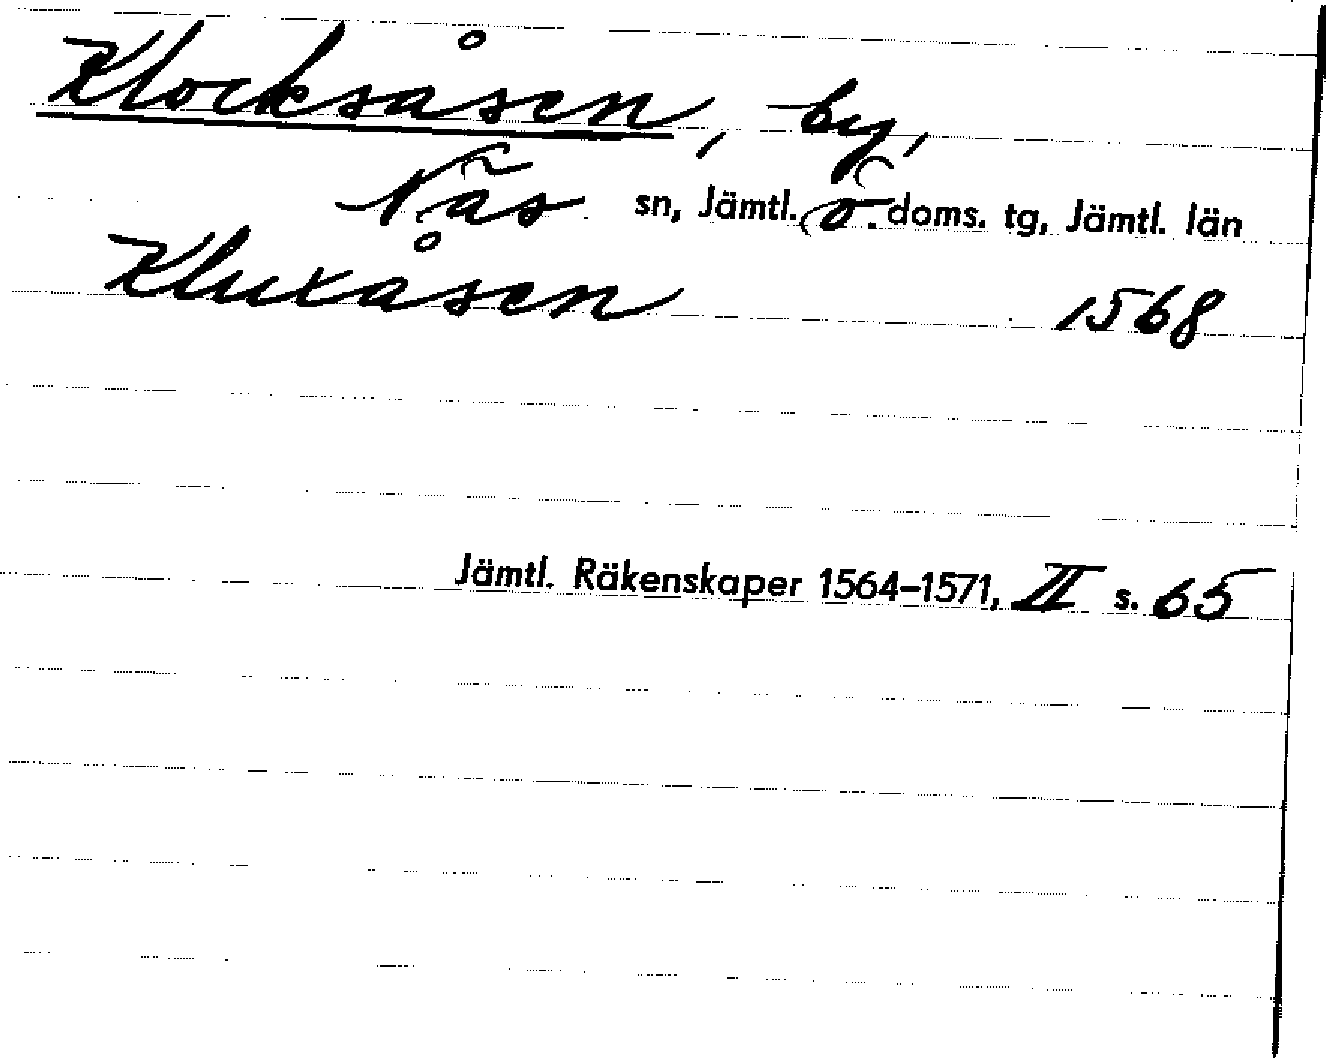 Klocksåsen, by,
Näs sn, Jämtl. ö. doms. tg, Jämtl. län
Kluxåsen 1568
Jämtl. Räkenskaper 1564–1571, II s. 65